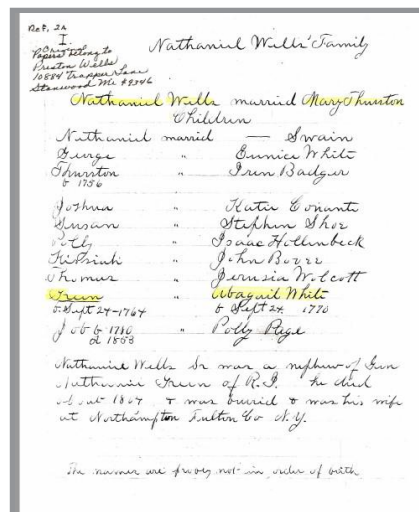 Ref. 2A
I.
Nathaniel Wells' Family
Original
Papers belong to
Preston Wells
10884 Trapper Lane
Stanwood Mi 49346
Nathaniel Wells married Mary Thurston
Children
Nathaniel married — Swain
George " Eunice White
Thurston " Iren Badger
b 1756
Joshua " Katie Conant
Susan " Stephen Shoe
Polly " Isaac Hollenbeck
Kirziah " John
Thomas " Jerusia Wolcott
Green " Abagail White
b. Sept 24-1764 b Sept 24. 1770
Job b 1780 " Polly Page
d 1853
Nathaniel Wells Sr was a nephew of Gen
Nathaniel Green of R.I. he died
about 1804 & was buried & was his wife
at Northampton Fulton Co N.Y.
The names are not in order of birth